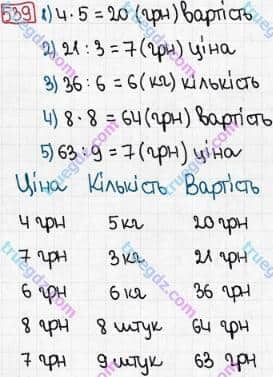 539 1) 4 · 5 = 20 (грн) вартість
2) 21 : 3 = 7 (грн) ціна
3) 36 : 6 = 6 (кг) кількість
4) 8 · 8 = 64 (грн) вартість
5) 63 : 9 = 7 (грн) ціна
Ціна Кількість Вартість
4 грн 5 кг 20 грн
7 грн 3 кг 21 грн
6 грн 6 кг 36 грн
8 грн 8 штук 64 грн
7 грн 9 штук 63 грн
truegdz.com